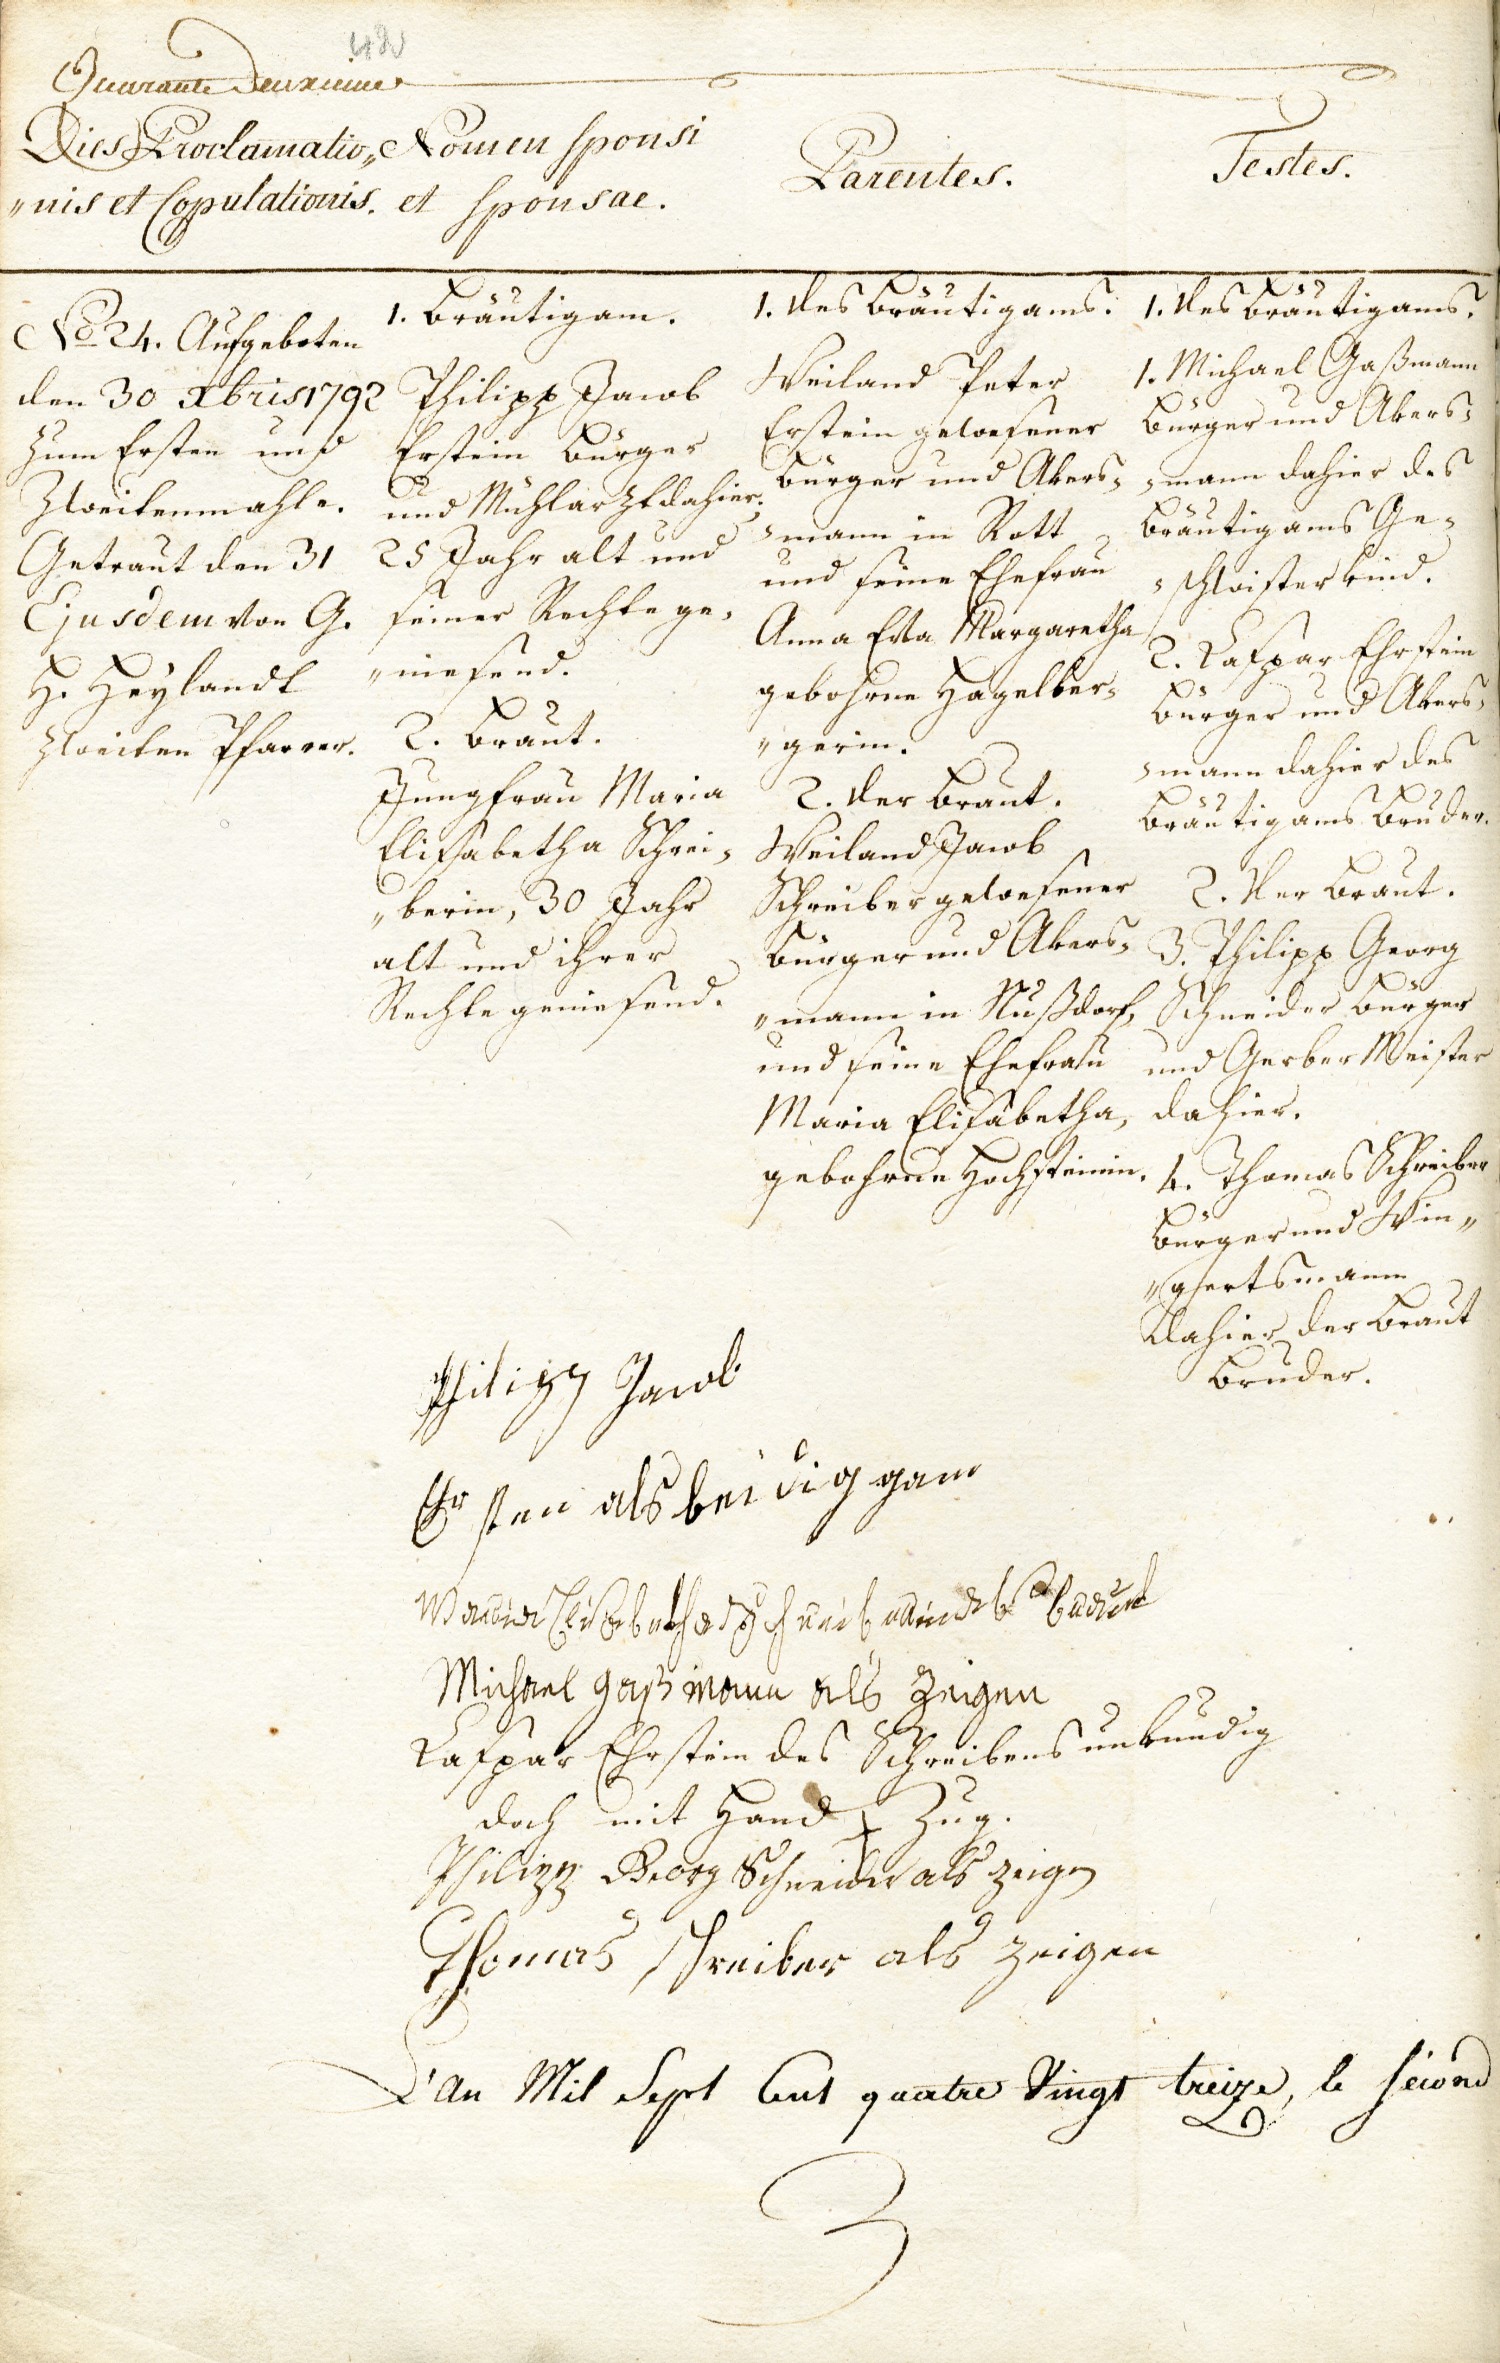 42
Quarante Deuxieme
Dies Proclamatio„
„nis et Copulationis.
Nomen sponsi
et sponsae.
Parentes.
Testes.
No 24. Aufgeboten
den 30 Xbris 1792
zum Ersten und
Zweitenmahle.
Getraut den 31
Ejusdem von G.
H. Heylandt
zweiten Pfarrer.
1. Bräutigam.
Philipp Jacob
Erstein Bürger
und Mühlarzt dahier,
25 Jahr alt und
seiner Rechte ge„
„niesend.
2. Braut.
Jungfrau Maria
Elisabetha Schrei„
„berin, 30 Jahr
alt und ihrer
Rechte geniesend.
1. des Bräutigams.
Weiland Peter
Erstein gewesener
Bürger und Akers„
„mann in Rott
und seine Ehefrau
Anna Eva Margaretha
gebohrne Hagelber„
„gerin.
2. der Braut.
Weiland Jacob
Schreiber gewesener
Bürger und Akers„
„mann in Nußdorf,
und seine Ehefrau
Maria Elisabetha,
gebohrne Hochsteinin.
1. des Bräutigams.
1. Michael Gaßmann
Bürger und Akers„
„mann dahier des
Bräutigams Ge„
„schwisterkind.
2. Caspar Ehrstein
Bürger und Akers„
„mann dahier des
Bräutigams Bruder.
2. Der Braut.
3. Philipp Georg
Schneider Bürger
und Gerber Meister
dahier.
4. Thomas Schreiber
Bürger und Win„
„gertsmann
dahier der Braut
Bruder.
Philipp Jacob
Ehrsten als beidiggam
Michael Gaßmann als Zeigen
Caspar Ehrstein des Schreibens unkundig
doch mit Hand + Zug.
Philipp Georg Schneider als zeigen
Thomas schreiber als zeigen
L'an Mil Sept Cent quatre Vingt treize, le second